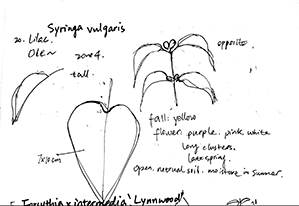 Syringa vulgaris
20. Lilac.
zone 4.
tall.
opposite
7x10cm
fall: yellow
flower purple. pink white
long clusters.
late spring.
open. netrual soil. moisture in summer.
Forsythia x intermedia 'Lynnwood'